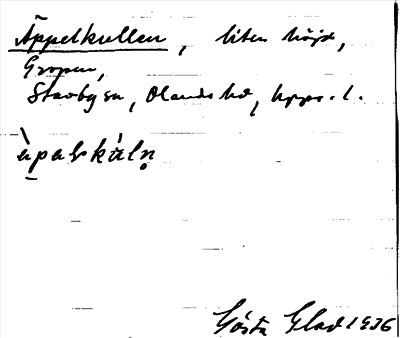 Äppelkullen, liten höjd,
Gropen,
Stavby sn, Olands hd, Upps. l.
àpalskúlṇ
Gösta Glad 1936